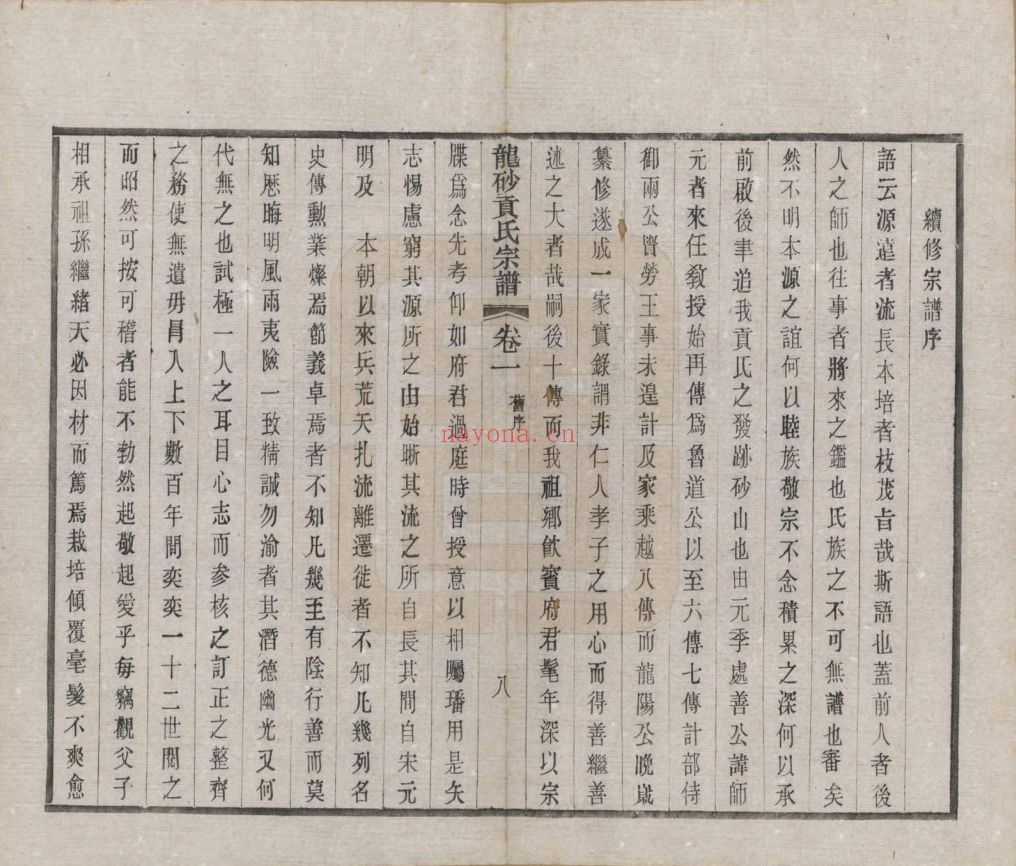 續修宗譜序
語云源遠者流長本培者枝茂旨哉斯語也蓋前人者後
人之師也往事者將來之鑑也氏族之不可無譜也審矣
然不明本源之誼何以睦族敬宗不念積累之深何以承
前啟後聿追我貢氏之發跡砂山也由元季處善公諱師
元者來任敎授始再傳爲魯道公以至六傳七傳計部侍
御兩公賢勞王事未遑計及家乘越八傳而龍陽公晚歲
纂修遂成一家實錄謂非仁人孝子之用心而得善繼善
述之大者哉嗣後十傳而我祖鄉飲賓府君髦年深以宗
龍砂貢氏宗譜 卷一 舊序 八
牒爲念先考仰如府君過庭時曾授意以相囑璠用是矢
志惕慮窮其源所之由始晰其流之所自長其間自宋元
明及 本朝以來兵荒天扎流離遷徙者不知凡幾列名
史傳勳業燦焉節義卓焉者不知凡幾至有陰行善而莫
知歷晦明風雨夷險一致精誠勿渝者其潛德幽光又何
代無之也試極一人之耳目心志而參核之訂正之整齊
之務使無遺毋冐入上下數百年間奕奕一十二世閱之
而昭然可按可稽者能不勃然起敬起愛乎每竊觀父子
相承祖孫繼緒天必因材而篤焉栽培傾覆毫髮不爽愈
nayona.cn